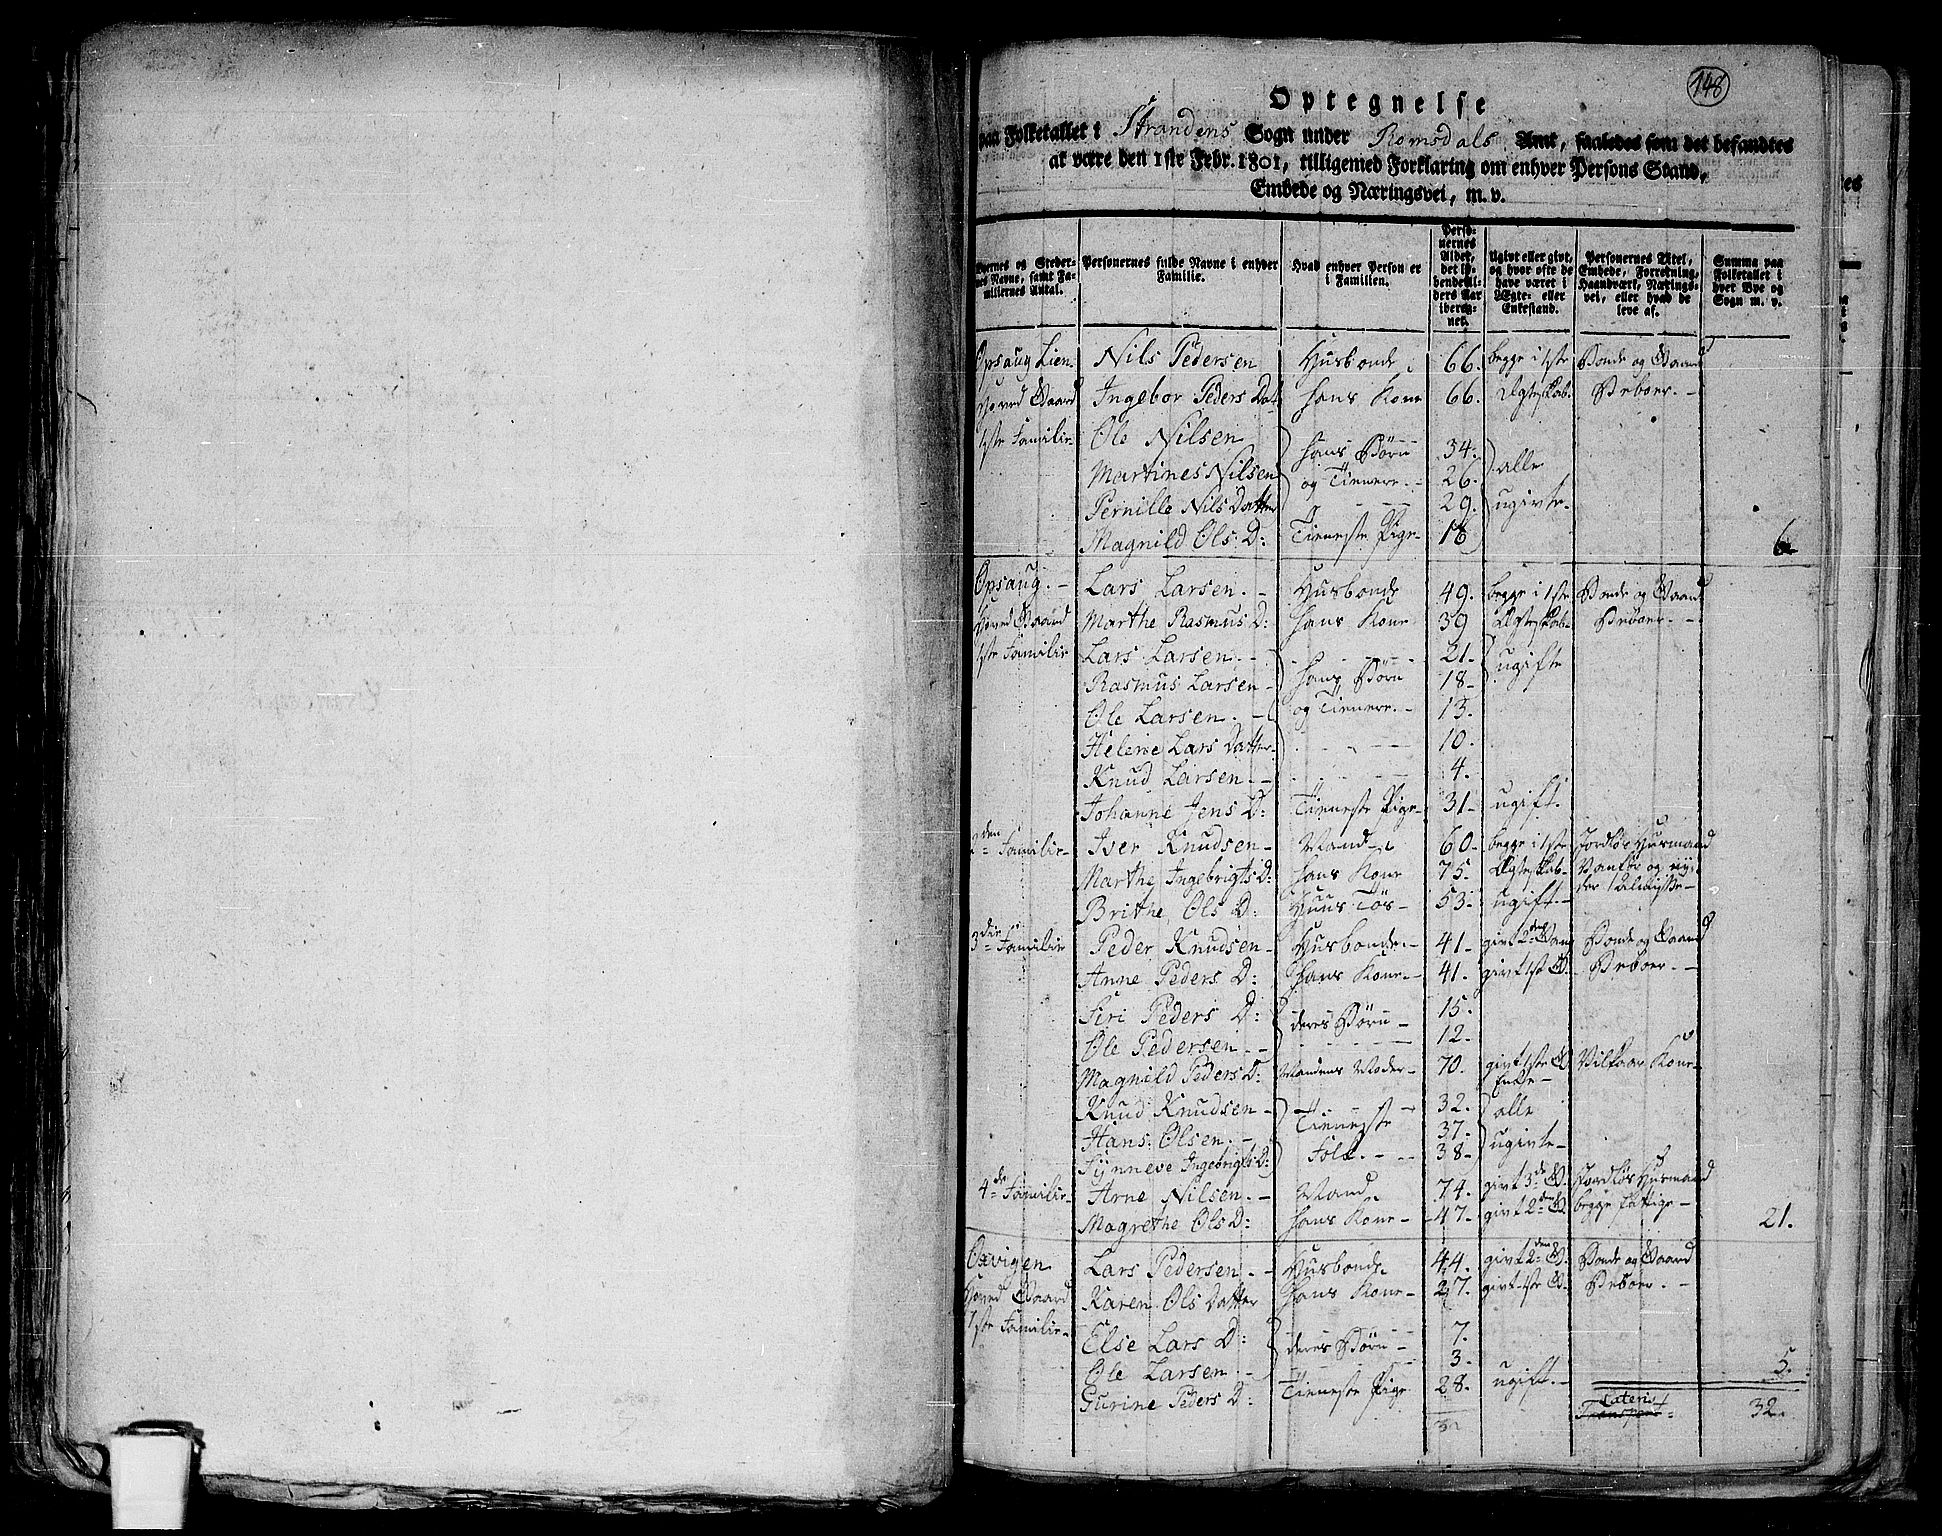 148
Optegnelse
paa Folketallet i Strandens Sogn under Romsdals Amt, saaledes som det befandtes
at være den 1ste Febr. 1801, tilligemed Forklaring om enhver Persons Stand,
Embede og Næringsvei, m. v.
Byernes og Stedernes Navne, samt Familliernes Antal. Personernes fulde Navne i enhver Familie. Hvad enhver Person er i Familien. Personernes Alder, det løbende Alders Aar iberegnet. Ugivt eller givt, og hvor ofte de have været i Ægte- eller Enkestand. Personernes Titel, Embede, Forretning, Haandværk, Næringsvei, eller hvad de leve af. Summa paa Folketallet i hver Bye og Sogn m. v.
Opsaug Lien Nils Pedersen Husbonde 66. begge i 1ste Bonde og Gaard
Hoved Gaard Ingebor Peders Dat hans Kone 66. Ægteskab. Beboer.
1ste Familie Ole Nilsen hans Børn 34.
Martines Nilsen og Tienere 26. alle
Pernille Nils Datter 29. ugivte
Magnild Ols D: Tieneste Pige 18 6
Opsaug. Lars Larsen. Husbonde 49. begge i 1ste Bonde og Gaard
Hoved Gaard Marthe Rasmus D: hans Kone 39 Ægteskab Beboer
1ste Familie Lars Larsen. 21. ugifte
Rasmus Larsen hans Børn 18
Ole Larsen. og Tienere 13.
Helene Lars Datter 10.
Knud Larsen. 4.
Johanne Jens D: Tieneste Pige 31 ugift.
2den Familie Iver Knudsen Mand 60. begge i 1ste Jordløs Husmand
Marthe Ingebrigts D: hans Kone 75. Ægteskab
Brithe Ols D: Huus Tøs 53. ugift.
3die Familie Peder Knudsen Husbonde 41. givt 2den Gang Bonde og Gaard
Anne Peders D: hans Kone 41. givt 1ste G. Beboer.
Siri Peders D: deres Børn 15.
Ole Pedersen. 12.
Magnild Peders D: Mandens Moder 70. givt 1ste G Enke Vilkaar Kone
Knud Knudsen 32. alle
Hans Olsen. Tieneste 37.
Synneve Ingebrigts D: Folk. 38 ugivte
4de Familie Arne Nilsen. Mand 74. givt 3de G. Jordløs Husmand
Magrethe Ols D: hans Kone 47 givt 2den G. begge fattige 21.
Oxvigen Lars Pedersen. Husbonde 44. givt 2den G. Bonde og Gaard
Hoved Gaard Karen Ols Datter hans Kone 27. givt 1ste G. Beboer.
1ste Familie Else Lars D: deres Børn 7.
Ole Larsen. 3. 5.
Gurine Peders D: Tieneste Pige 28. ugift.
Lateris
Transport 32.